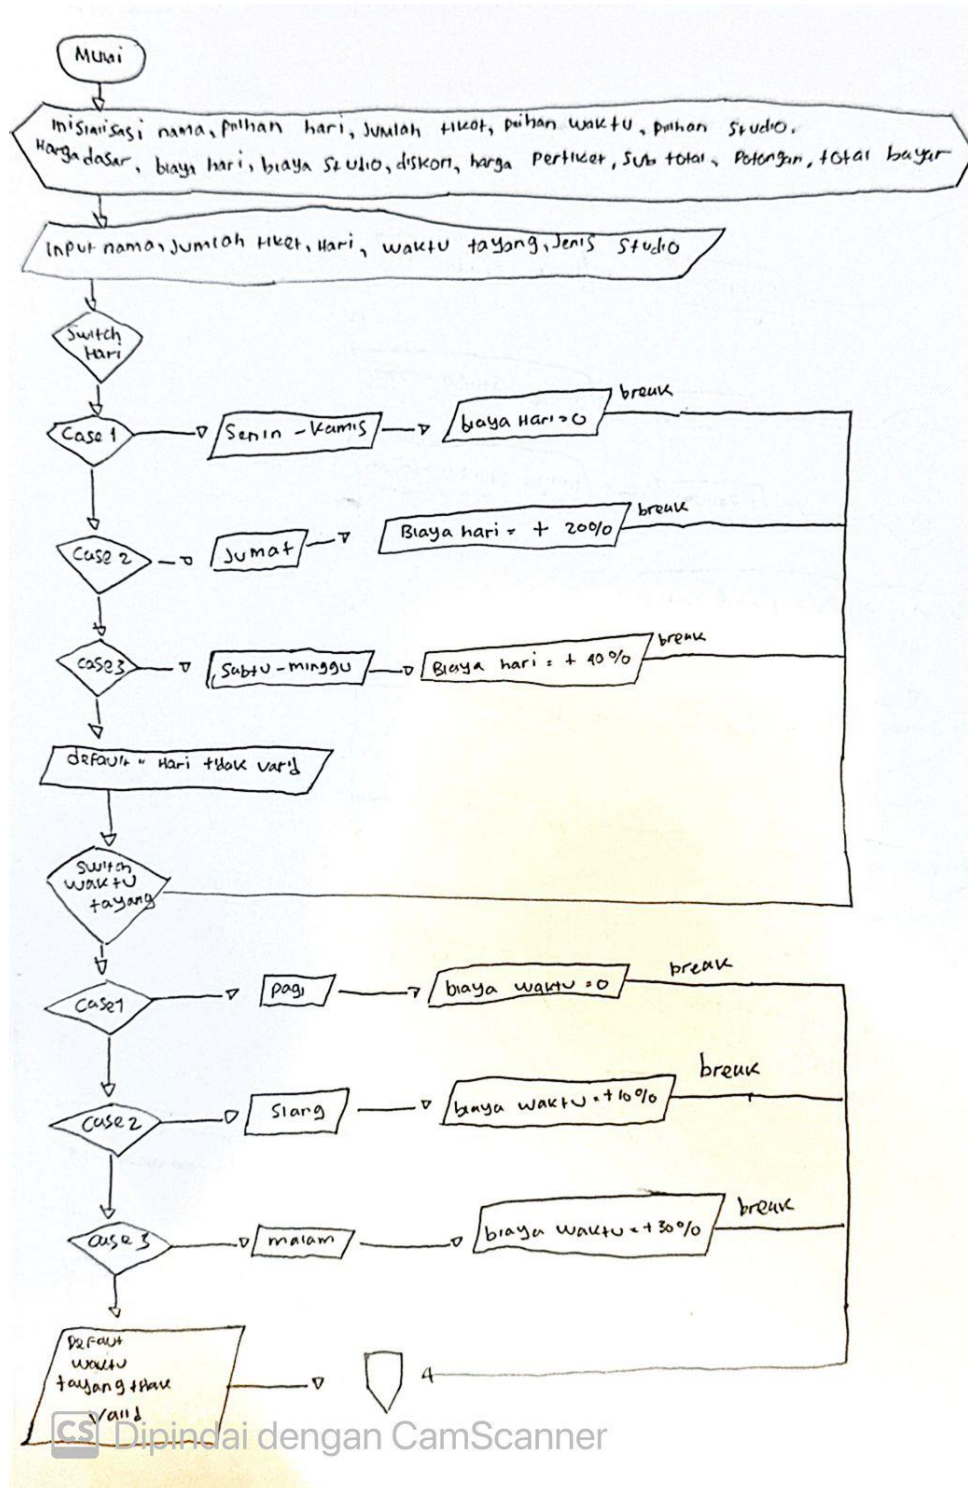 Mulai
inisialisasi nama, pilihan hari, Jumlah tiket, pilihan waktu, pilihan studio,
Harga dasar, biaya hari, biaya studio, diskon, harga pertiket, sub total, potongan, total bayar
input nama, Jumlah tiket, Hari, waktu tayang, Jenis studio
Switch
Hari
Case 1
Senin - Kamis
biaya Hari = 0
break
Case 2
Jumat
Biaya hari = + 20%
break
case 3
Sabtu - minggu
Biaya hari = + 40%
break
default = Hari tidak valid
Switch
waktu
tayang
case 1
pagi
biaya waktu = 0
break
case 2
Siang
biaya waktu = +10%
break
case 3
malam
biaya waktu = +30%
break
Default
waktu
tayang tidak
valid
4
CS Dipindai dengan CamScanner